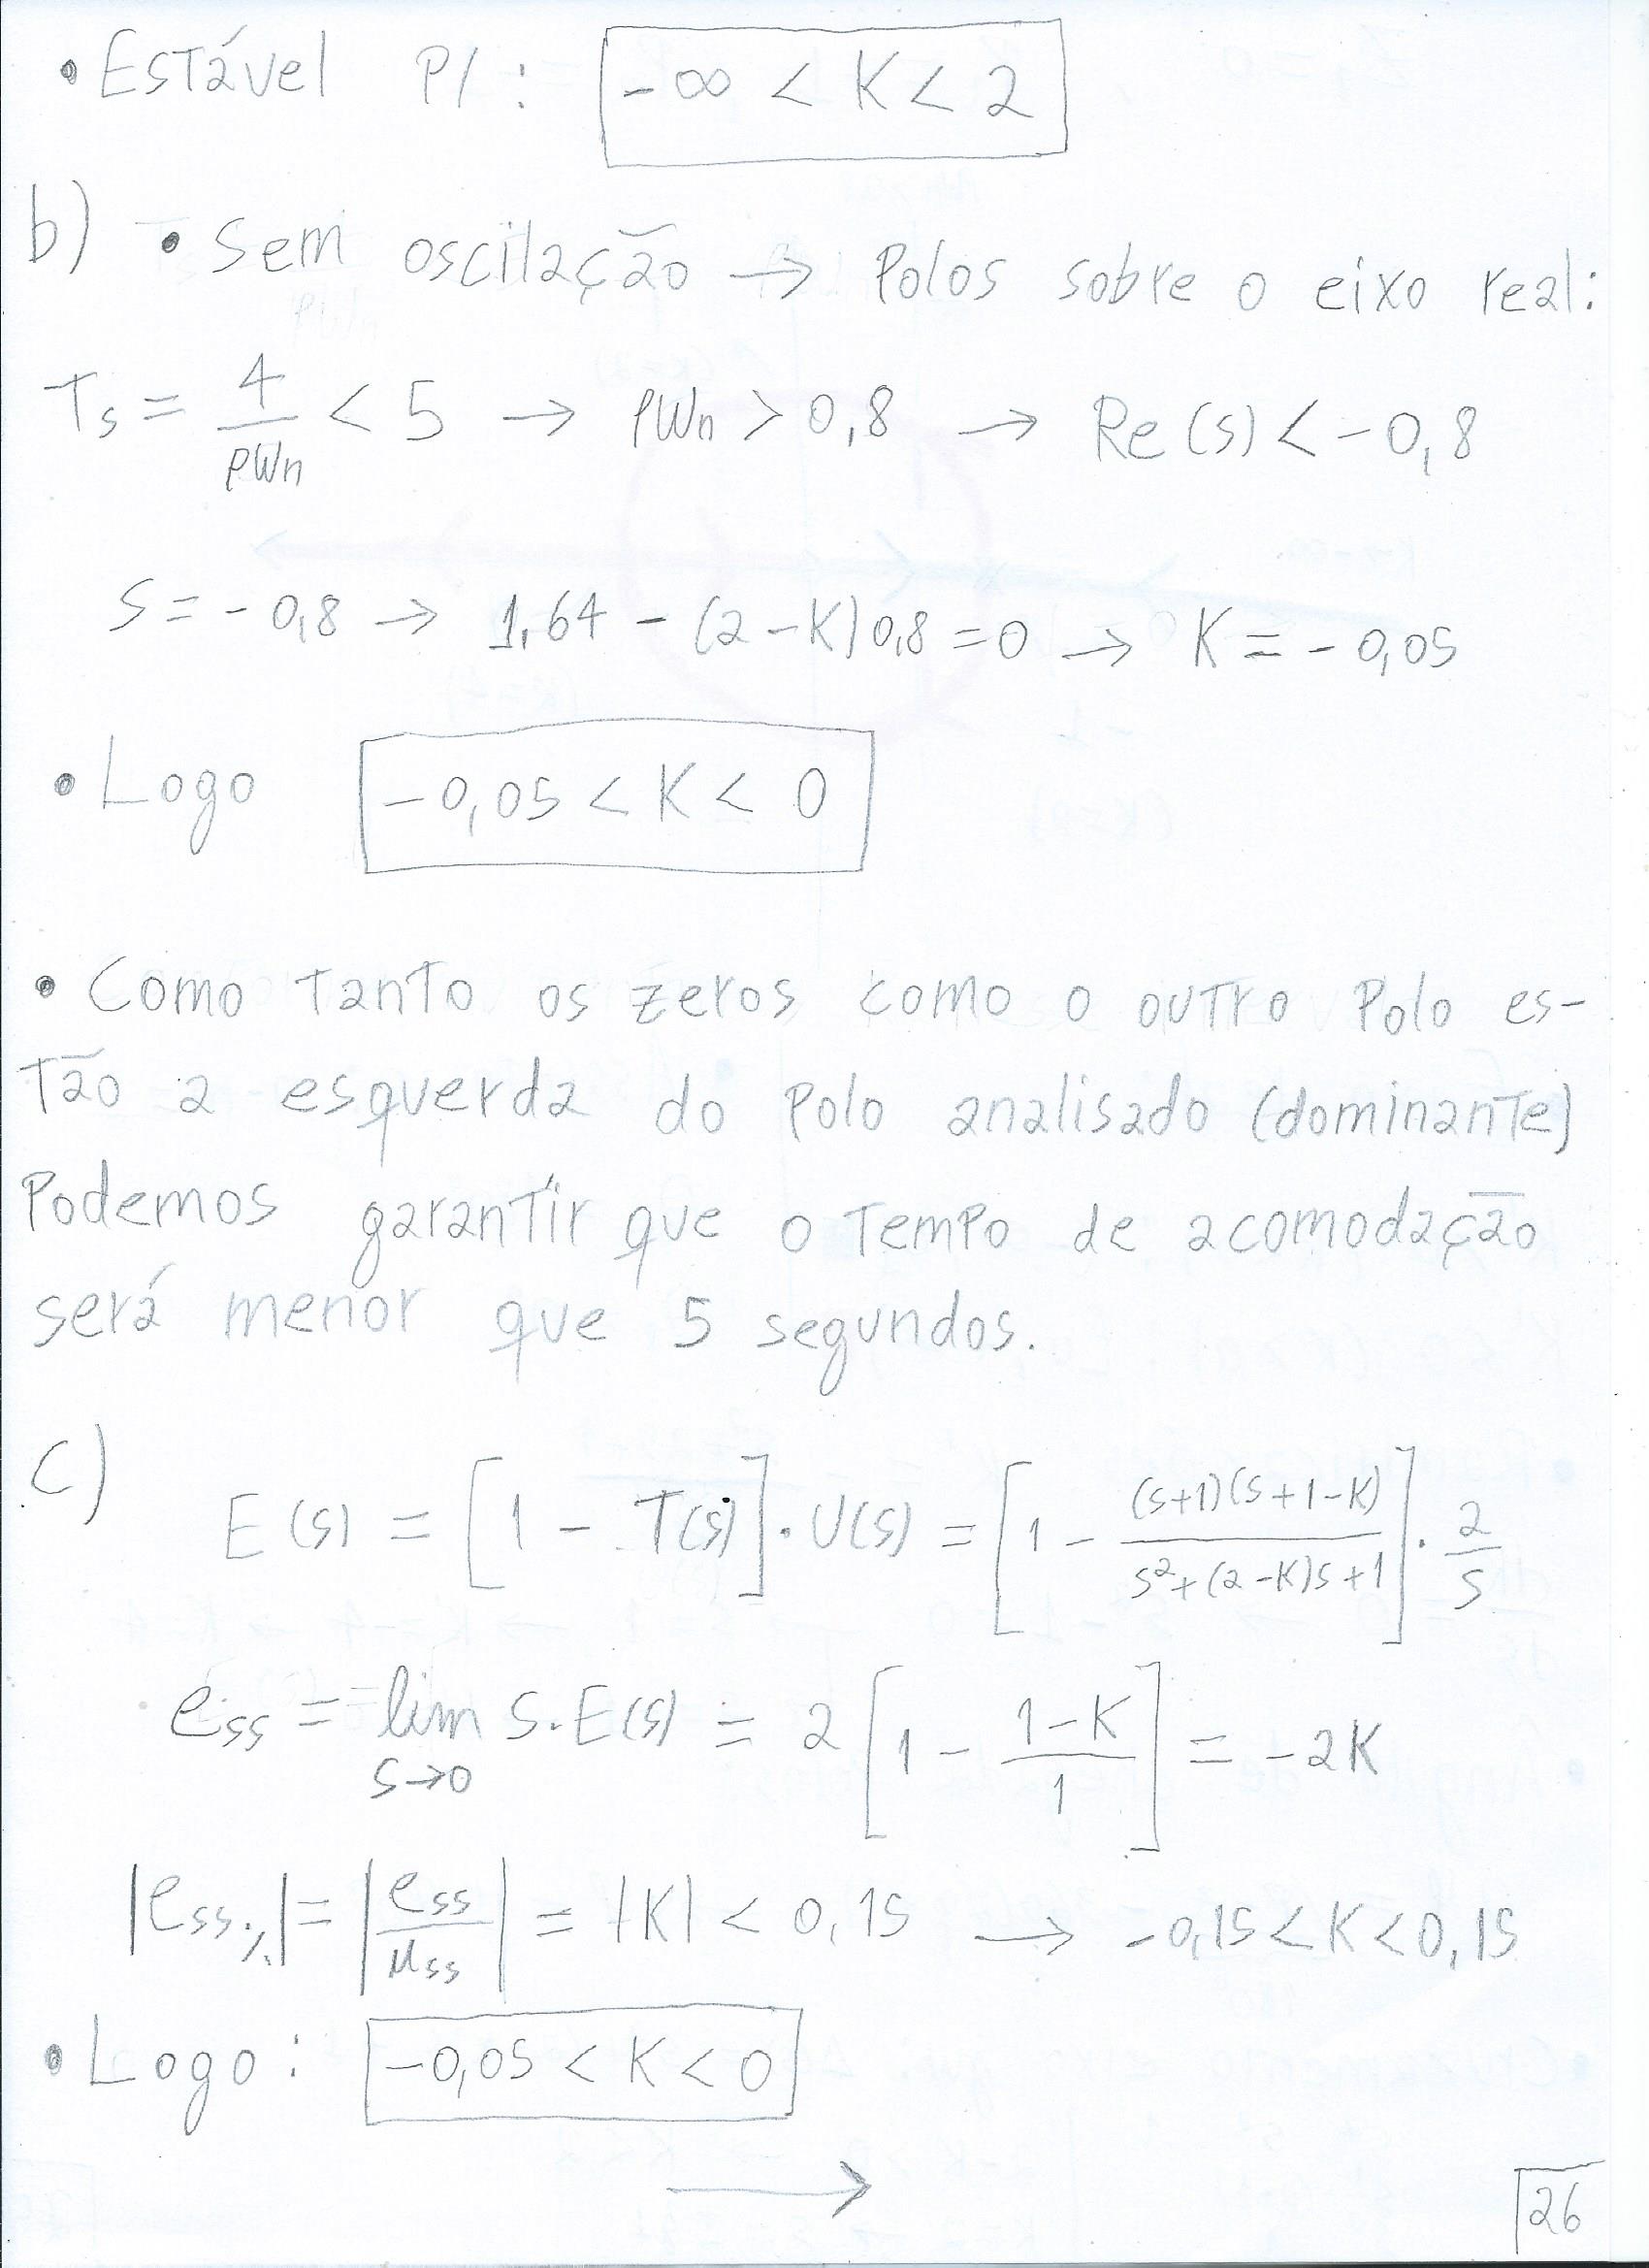 • Estável P/ : -∞ < K < 2
b) • Sem oscilação → Polos sobre o eixo real:
Ts = 4/ρWn < 5 → ρWn > 0,8 → Re(s) < -0,8
S = -0,8 → 1,64 - (2-K)0,8 = 0 → K = -0,05
• Logo -0,05 < K < 0
• Como tanto os zeros como o outro Polo es-
tão a esquerda do Polo analisado (dominante)
Podemos garantir que o tempo de acomodação
será menor que 5 segundos.
c) E(s) = [1 - T(s)] · U(s) = [1 - (s+1)(s+1-K)/s²+(2-K)s+1] · 2/s
ess = lim s→0 S.E(s) = 2[1 - 1-K/1] = -2K
|ess%| = |ess/μss| = |K| < 0,15 → -0,15 < K < 0,15
• Logo: -0,05 < K < 0
→
26